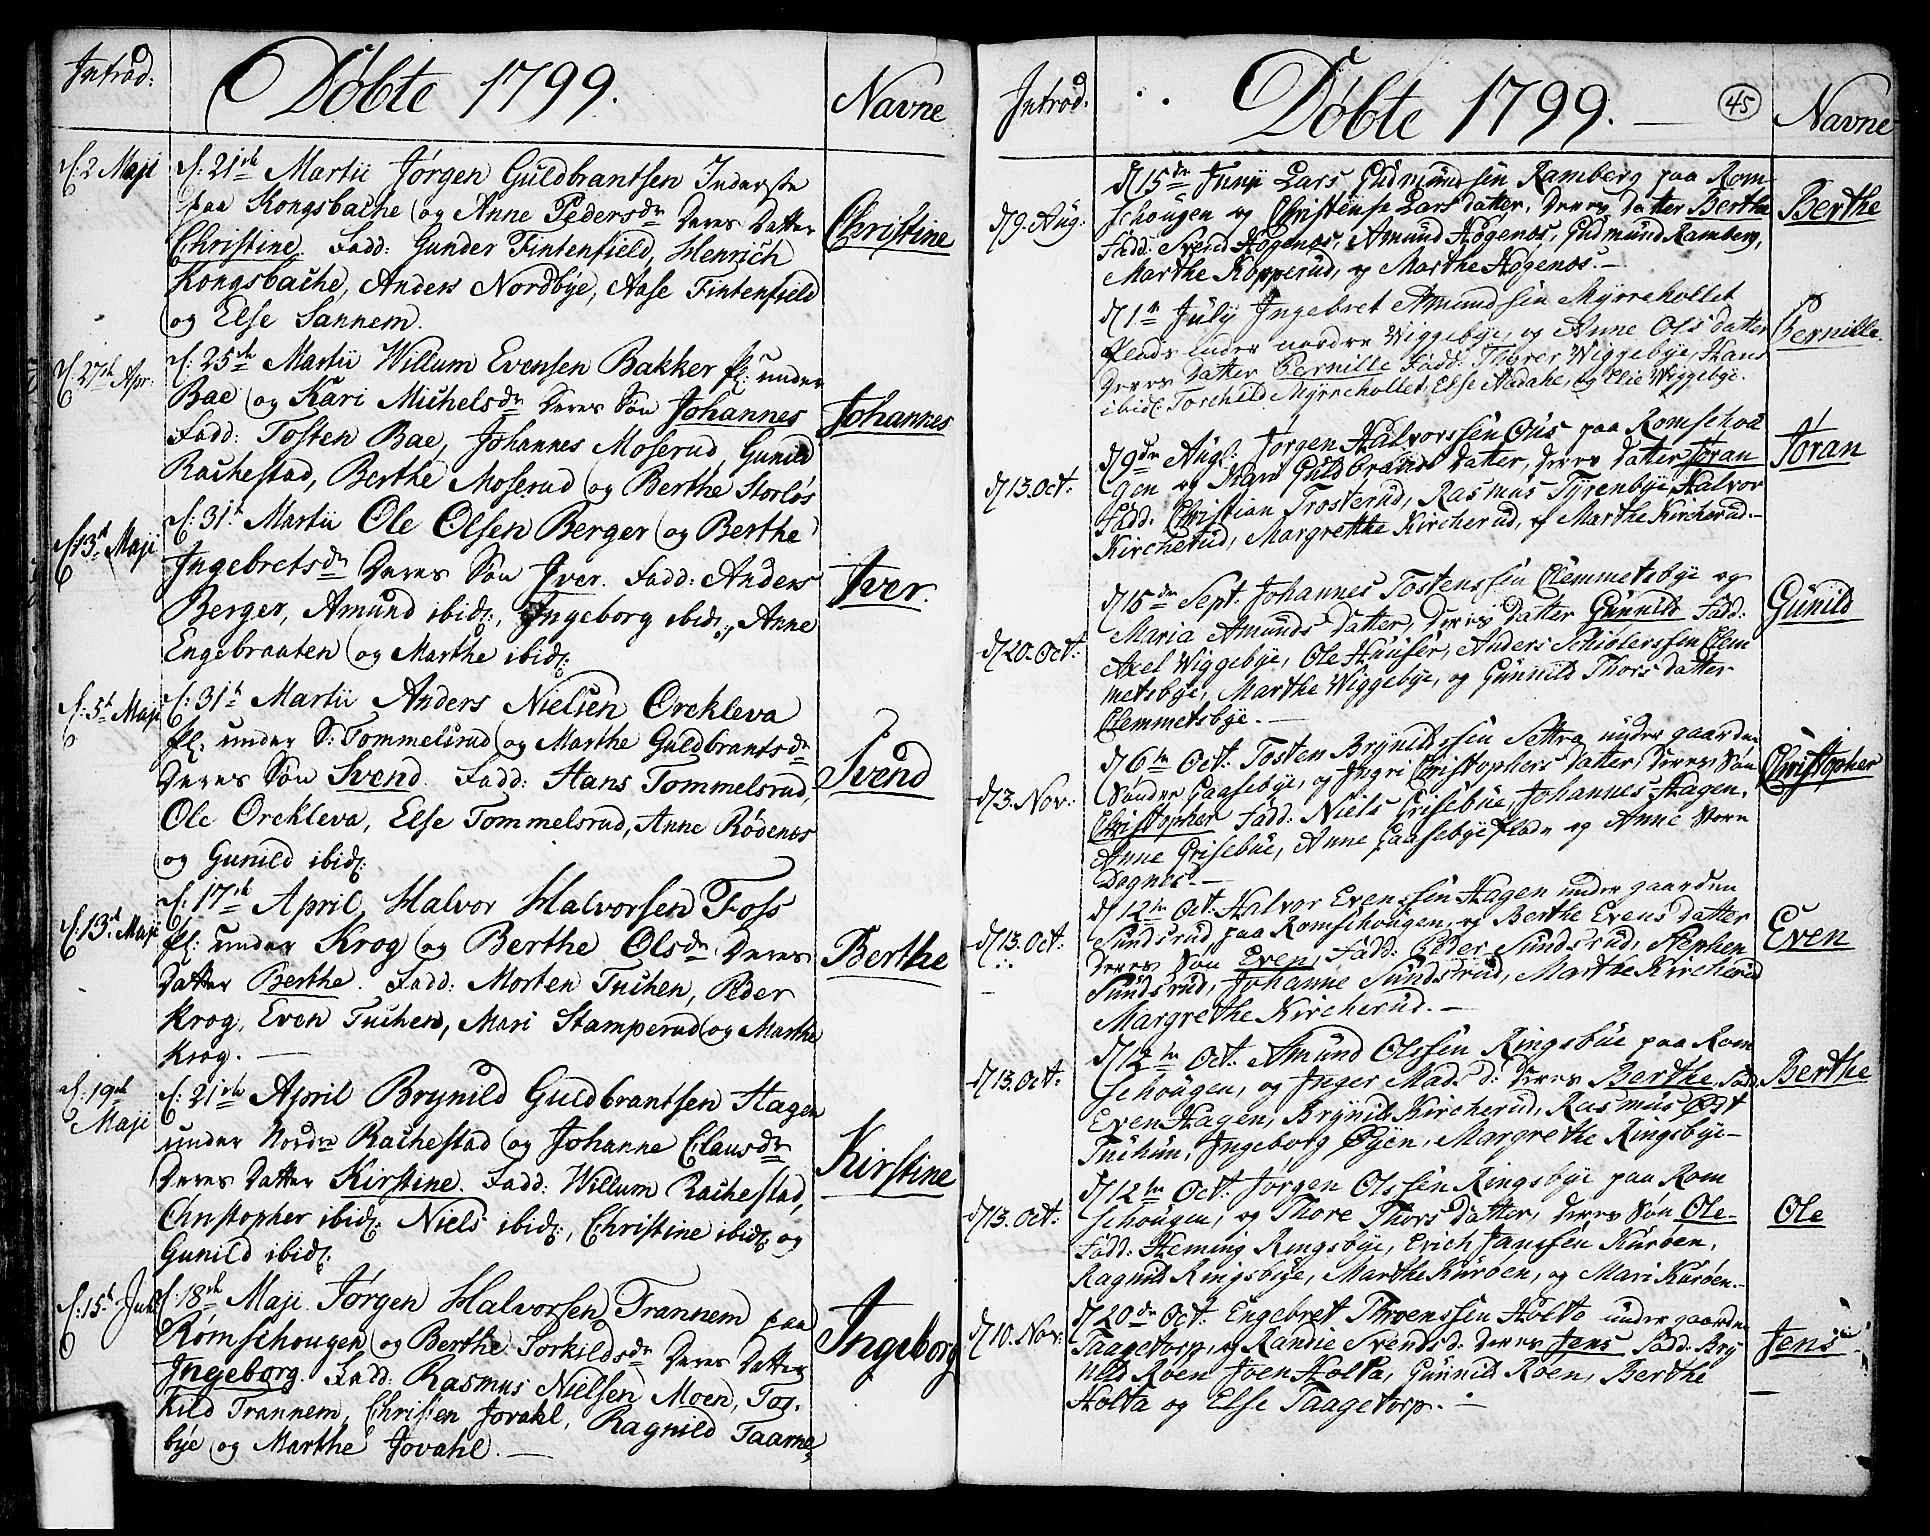 Introd:
Døbte 1799.
Navne
d: 2 Maji
d: 21de Martii Jørgen Guldbrantsen Inderste
paa Kongsbache og Anne Pedersdr Deres Datter
Christine. Fadd: Gunder Fintenfield, Henrich
Kongsbache, Anders Nordbye, Aase Fintenfield
og Else Sannem.
Christine
d: 27de Apr:
d: 25de Martii Willum Evensen Bakker pl: under
Bae og Kari Michelsdr Deres Søn Johannes
Fadd: Tosten Bae, Johannes Moserud, Gunild
Rachestad, Berthe Moserud og Berthe Storløs
Johannes
d: 13d Maji
d: 31t Martii Ole Olsen Berger og Berthe
Ingebretsdr Deres Søn Iver. Fadd: Anders
Berger, Amund ibid:, Ingeborg ibid:, Anne
Engebraaten og Marthe ibid:
Iver.
d: 5t Maji
d: 31t Martii Anders Nielsen Orekleva
pl: under S: Tommelsrud og Marthe Guldbrantsdr
Deres Søn Svend. Fadd: Hans Tommelsrud,
Ole Orekleva, Else Tommelsrud, Anne Rødenæs
og Gunild ibid:
Svend
d: 13d Maji
d: 17de April Halvor Halvorsen Foss
pl: under Krog og Berthe Olsdr Deres
Datter Berthe. Fadd: Morten Tuchen, Peder
Krog, Even Tuchen, Mari Stamperud og Marthe
Krog.
Berthe
d: 19de
Maji
d: 21de April Brynild Guldbrantsen Hagen
under Nordre Rachestad og Johanne Clausdr
Deres Datter Kirstine. Fadd: Willum Rachestad,
Christopher ibid: Niels ibid:, Christine ibid: og
Gunild ibid:
Kirstine
d: 15t Juli
d: 18de Maji Jørgen Halvorsen Trannem paa
Rømschougen og Berthe Torkildsdr Deres Datter
Ingeborg. Fadd: Rasmus Nielsen Moen, Tor-
kild Trannem, Christen Jovahl, Ragnild Taarne-
bye og Marthe Jovahl.
Ingeborg
Introd:
Døbte 1799.
45
Navne
d 9. Aug:
d 15de Junji Lars Gudmundsen Ramberg paa Rom-
schougen og Christense Lars datter, deres datter Berthe
Fadd: Svend Høgenæs, Amund Høgenæs, Gudmund Ramberg,
Marthe Kopperud, og Marthe Høgenæs.
Berthe
d 1te July Ingebret Amundsen Myrrehollet
Plads under nordre Wiggebye, og Anne Ols datter
deres datter Pernille Fadd: Thorer Wiggebye, Hans
ibid: Torchild Myrrehollet, Else Aadahl, og Elie Wiggebye.
Pernille.
d 13. Oct:
d 9de Augl: Jørgen Halvorssen Ous paa Romschou
gen og Kari Guldbrands datter, deres datter Joran
Fadd: Christian Trosterud, Rasmus Tyrenbye, Halvor
Kircherud, Margrethe Kircherud, og Marthe Kircherud.
Joran
d 20. Oct:
d 15de Sept: Johannes Tostenssen Clemmetsbye og
Maria Amunds datter, deres datter Gunnild Fadd:
Axel Wiggebye, Ole Huuser, Anders Schiølerssen Clem
metsbye, Marthe Wiggebye, og Gunnild Thors datter
Clemmetsbye.
Gunild
d 3. Nov:
d 6te Oct. Tosten Brynildssen Settra under gaarden
Sønder Gaasebye, og Ingri Christophers datter, deres Søn
Christopher Fadd: Niels Grisebue, Johannes Hagen,
Anne Grisebue, Anne Gaasebyeflad, og Anne Store
Dognes.
Christopher
d 13. Oct:
d 12te Oct: Halvor Evenssen Hagen under gaarden
Sundsrud paa Romschougen, og Berthe Evens datter
deres Søn Even, Fadd: Peder Sundsrud, Stephen
Sundsrud, Johanne Sundsrud, Marthe Kircherud
Margrethe Kircherud.
Even
d 13. Oct:
d 12te Oct: Amund Olssen Ringsbue paa Rom
schougen, og Inger Mads d: deres Berthe, Fadd:
Even Hagen, Brynild Kircherud, Rasmus Øst
Tuchun, Ingeborg Øyen, Margrethe Ringsbye
Berthe
d 13. Oct:
d 12te Oct: Jørgen Olssen Ringsbye paa Rom
schougen, og Thore Thors datter, deres Søn Ole
Fadd: Heming Ringsbye, Erich Janssen Kurøen,
Ragnild Ringsbye, Marthe Kurøen, og Mari Kurøen.
Ole
d 10. Nov:
d 20de Oct: Engebret Throenssen Holta under gaarden
Taagetorp, og Randie Svends d: deres Jens Fadd: Bry
nild Roen Joen Holta, Gunnild Roen, Berthe
Holta og Else Taagetorp.
Jens